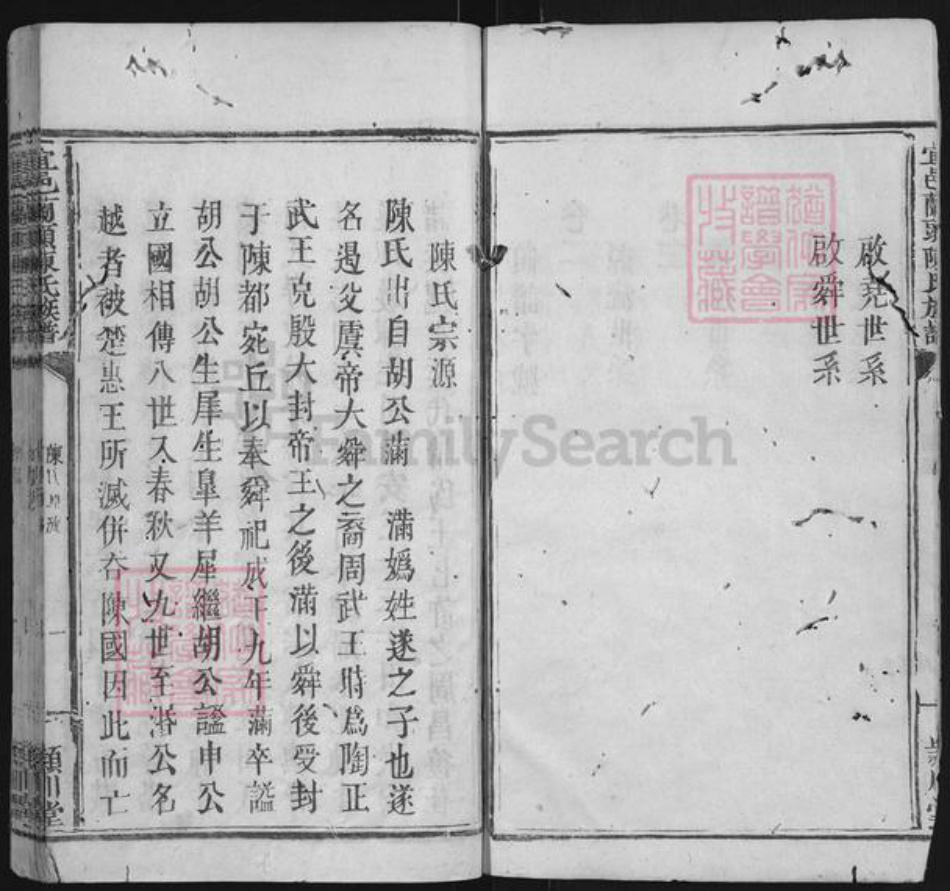 宜邑蘭頭陳氏族譜
啟堯世系
啟舜世系
陳氏宗源
陳氏出自胡公滿 滿嬀姓遂之子也遂
名遏父虞帝大舜之裔周武王時爲陶正
武王克殷大封帝王之後滿以舜後受封
于陳都宛丘以奉舜祀成王九年滿卒諡
胡公胡公生犀生臯羊犀繼胡公諡申公
立國相傳八世入春秋又九世至湣公名
越者被楚惠王所滅併吞陳國因此而亡
宜邑蘭頭陳氏族譜
一
潁川堂
FamilySearch